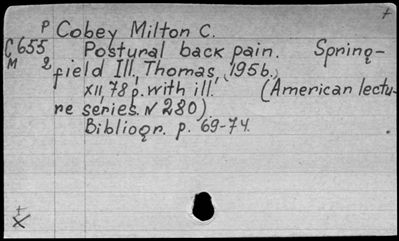 P
Cobey Milton C.
C655 Postural back pain. Spring-
M 2 field Ill., Thomas, 1956.,
XII, 78 p. with ill. (American lectu-
re series. N 280)
Bibliogr. p. 69-74.